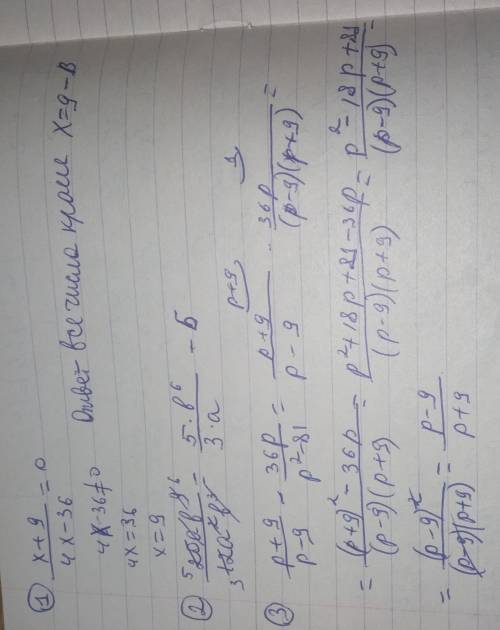 ① (x + 9)/(4x − 36) = 0
4x − 36 ≠ 0 Ответ все числа кроме x = 9 – В
4x = 36
x = 9
② = (5 · b⁶)/(3 · a) – Б
③ (p + 9)/(p − 9) − 36p/(p² − 81) = (p + 9)/(p − 9) − 36p/((p − 9)(p + 9)) =
= ((p + 9)² − 36p)/((p − 9)(p + 9)) = (p² + 18p + 81 − 36p)/((p − 9)(p + 9)) = (p² − 18p + 81)/((p − 9)(p + 9)) =
= (p − 9)²/((p − 9)(p + 9)) = (p − 9)/(p + 9)